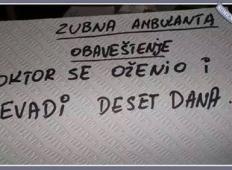 ZUBNA AMBULANTA
OBAVEŠTENJE
OKTOR SE OŽENIO I
EVADI DESET DANA.